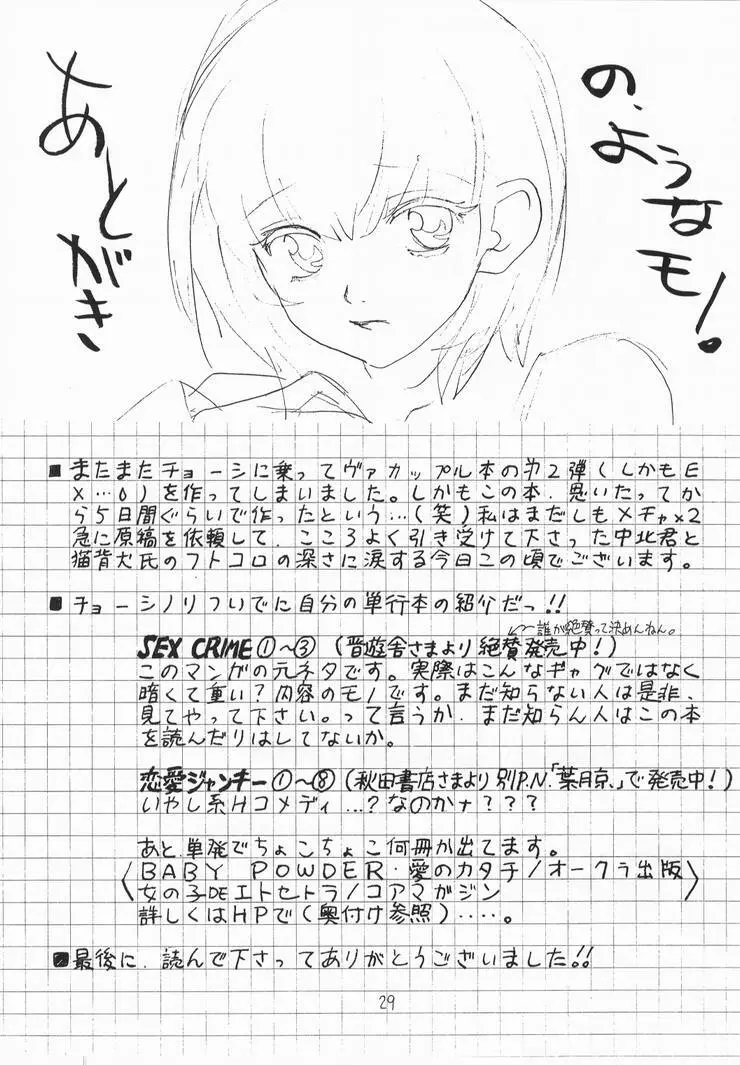 あとがき
の、ようなモノ。
■またまたチョーシに乗ってヴァカップル本の第2弾(しかもE
X…0)を作ってしまいました。しかもこの本、思いたってか
ら5日間ぐらいで作ったという…(笑)私はまだしもメチャx2
急に原稿を依頼して、こころよく引き受けて下さった中北君と
猫背犬氏のフトコロの深さに涙する今日この頃でございます。
■チョーシノリついでに自分の単行本の紹介だっ!!
誰が絶賛って決めんねん。
SEX CRIME①〜③(晋遊舎さまより絶賛発売中!)
このマンガの元ネタです。実際はこんなギャグではなく
暗くて重い?内容のモノです。まだ知らない人は是非、
見てやって下さい。って言うか、まだ知らん人はこの本
を読んだりはしてないか。
恋愛ジャンキー①〜⑧(秋田書店さまより別P.N.「葉月京、」で発売中!)
いやし系Hコメディ...?なのかナ???
あと、単発でちょこちょこ何冊か出てます。
〈BABY POWDER・愛のカタチ/オークラ出版
女の子DEエトセトラ/コアマガジン〉
詳しくはHPで(奥付け参照)‥‥。
■最後に、読んで下さってありがとうございました!!
29